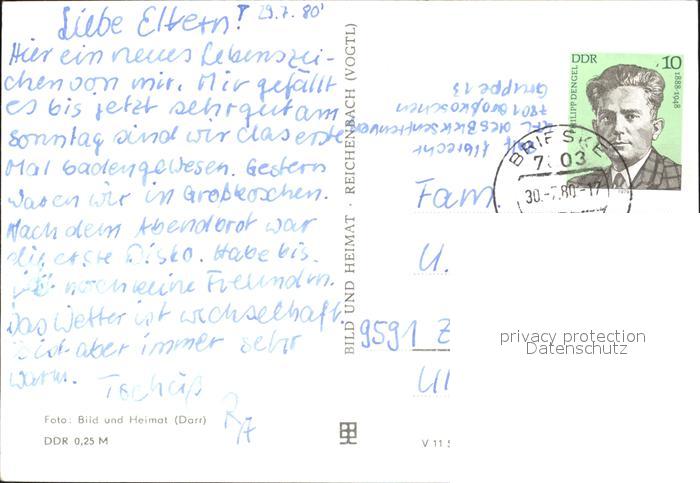 Liebe Eltern! 29.7.80'
Hier ein neues Lebenszei-
chen von mir. Mir gefällt
es bis jetzt sehr gut am
Sonntag sind wir das erste
Mal badengewesen. Gestern
waren wir in Großkoschen.
Nach dem Abendbrot war
die erste Disko. Habe bis
noch keine Freundin.
Das Wetter ist wechselhaft.
ist aber immer sehr
warm. Tschüß
Foto: Bild und Heimat (Darr)
DDR 0,25 M
BILD UND HEIMAT · REICHENBACH (VOGTL)
V 11
Albrecht
7801 Großkoschen
Gruppe 13
DDR 10
PHILIPP DENGEL
1888-1948
BRIESKE
7803
30.-7.80-17
Fam.
U.
9591 Z
privacy protection
Datenschutz